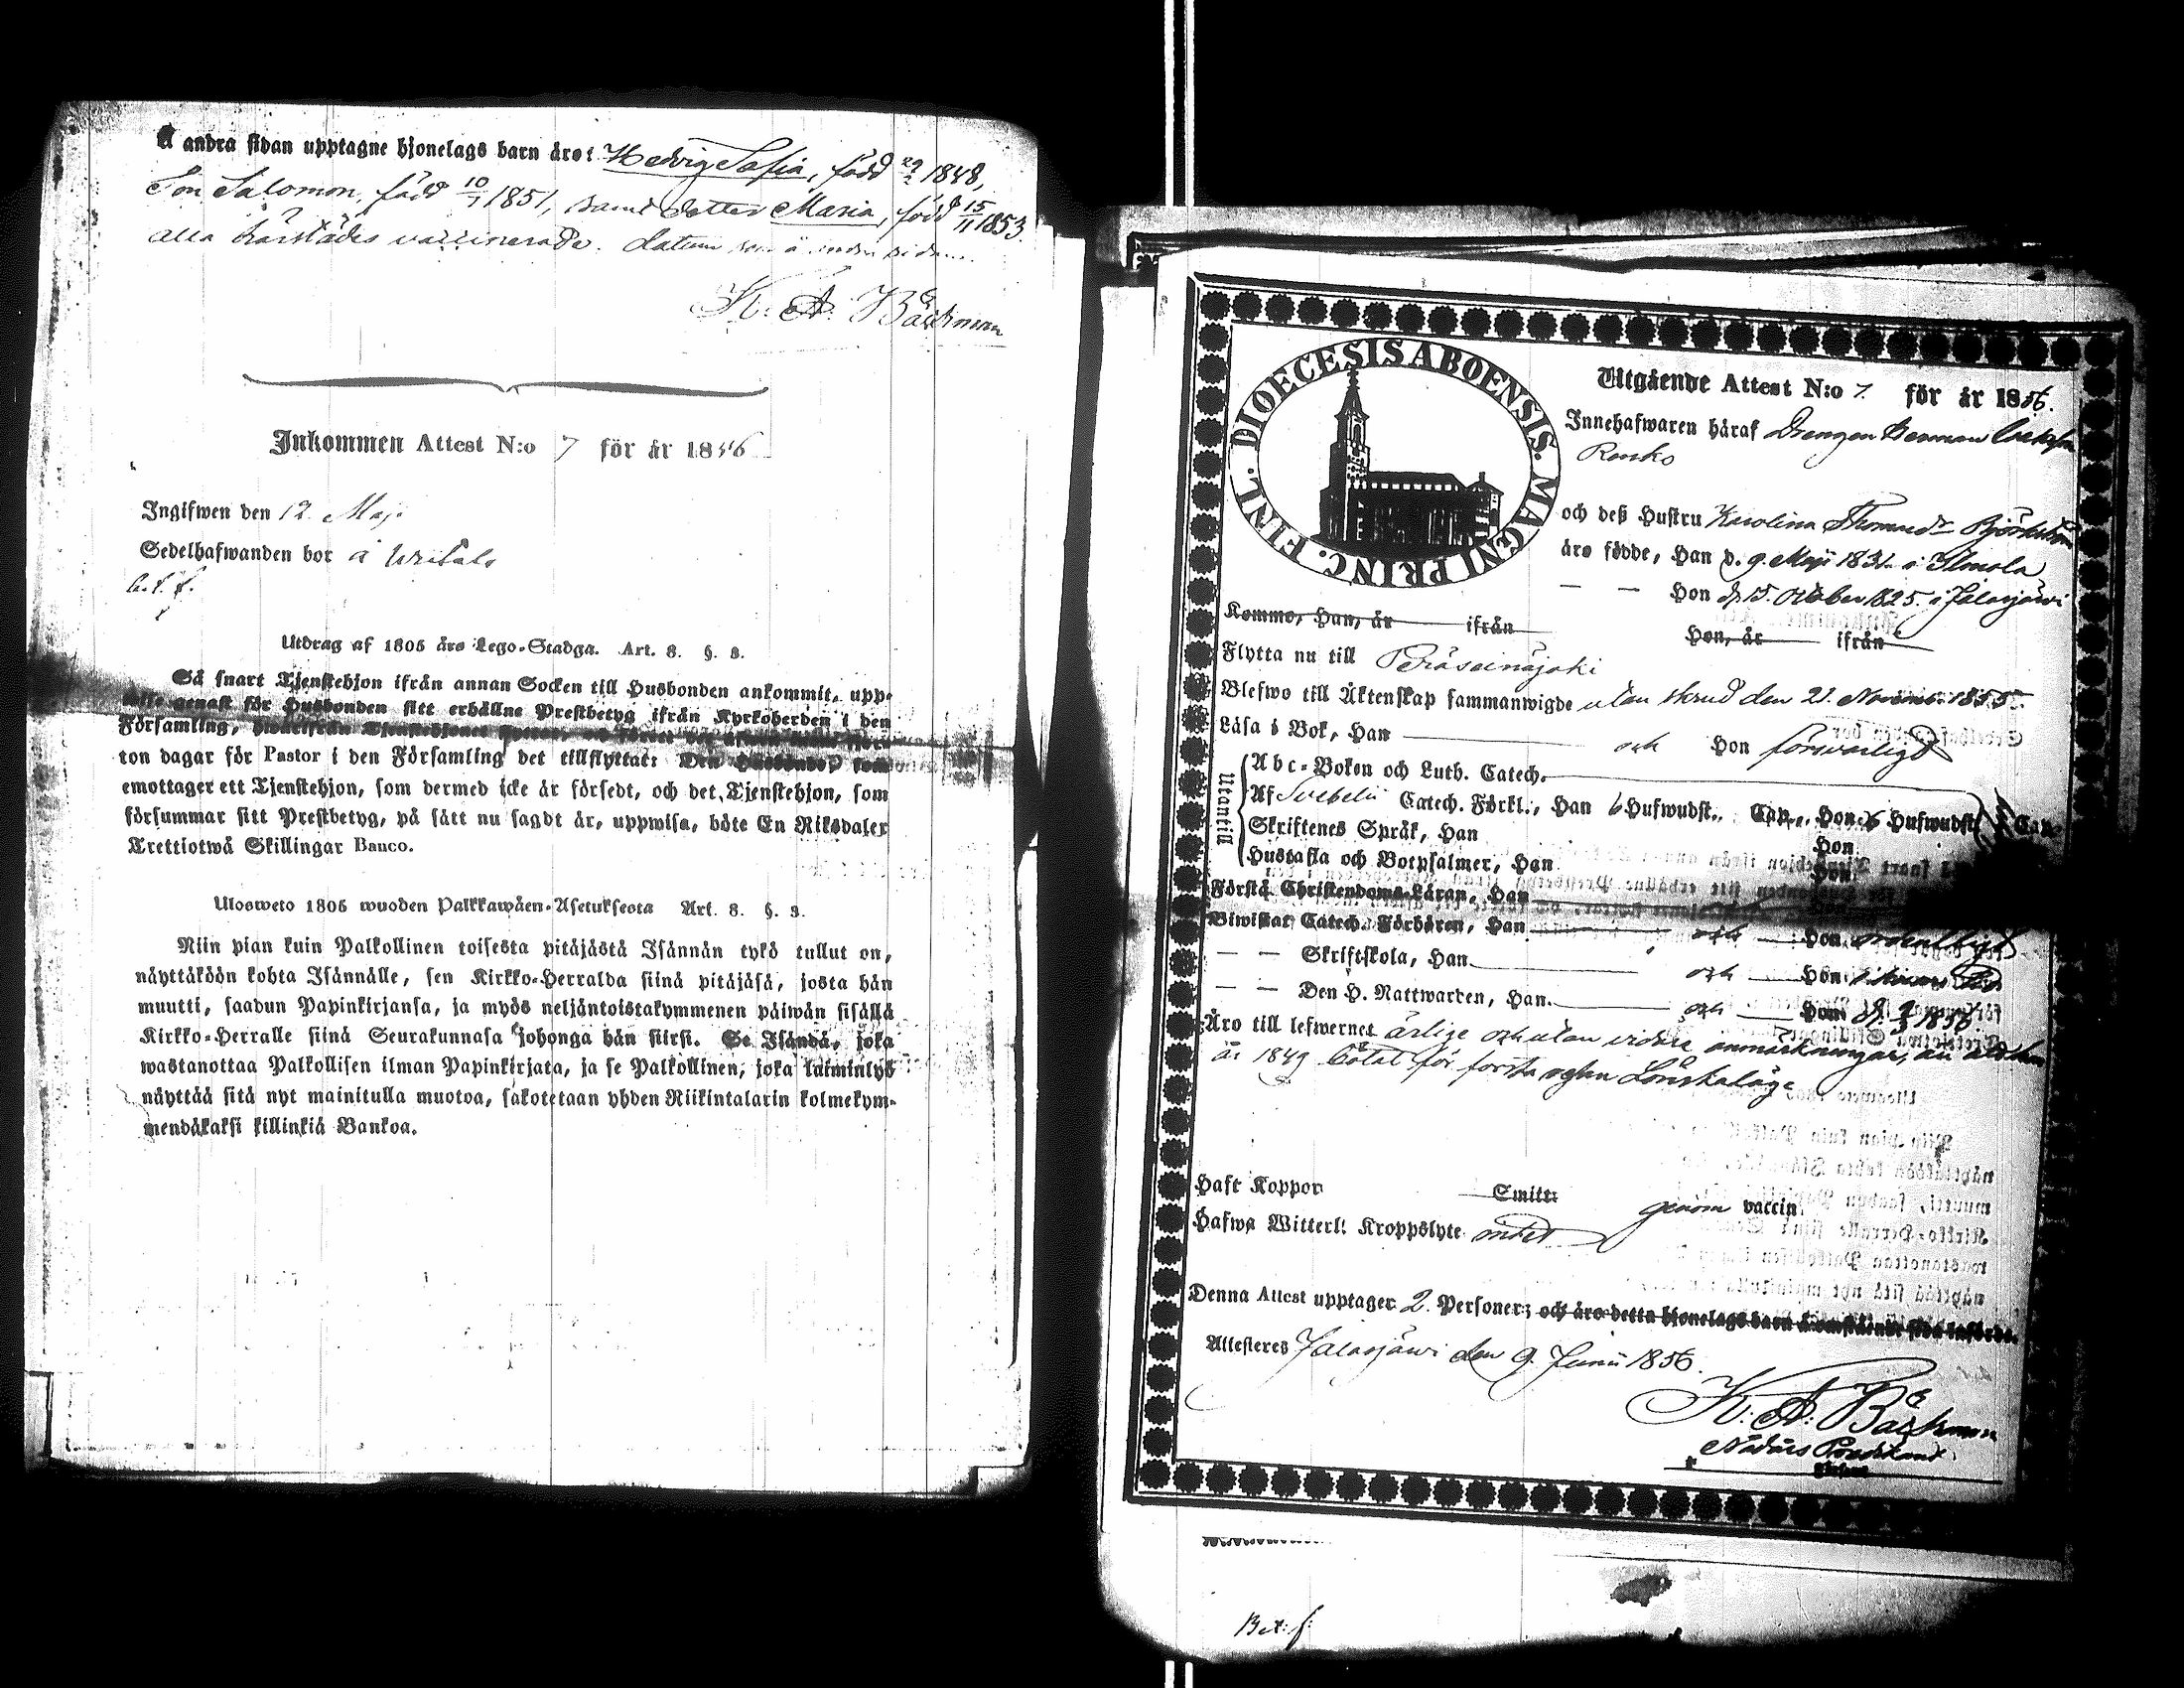 Å andra sidan upptagne hjonelags barn äro: Hedvig Sofia, född 1848,
Son Salomon, född 10/7 1851, samt dotter Maria, född 15/11 1853.
alla härstädes vaccinerade. Datum som å andra sidan.
K: A: Bäckman
Inkommen Attest N:o 7 för år 1856
Ingifwen den 12 Maj
Sedelhafwanden bor å
Utdrag af 1805 års Lego-Stadga. Art. 8. §. 3.
Så snart Tjenstehjon ifrån annan Socken till Husbonden ankommit, upp-
wise genast för Husbonden sitt erhållne Prestbetyg ifrån Kyrkoherden i den
Församling,
ton dagar för Pastor i den Församling det tillflyttat: Den Husbonde, som
emottager ett Tjenstehjon, som dermed icke är försedt, och det Tjenstehjon, som
försummar sitt Prestbetyg, på sätt nu sagdt är, uppwisa, böte En Riksdaler
Trettiotwå Skillingar Banco.
Ulosweto 1805 wuoden Palkkawäen-Asetuksesta Art. 8. §. 3.
Niin pian kuin Palkollinen toisesta pitäjästä Isännän tykö tullut on,
näyttäköön kohta Isännälle, sen Kirkko-Herralda siinä pitäjäsä, josta hän
muutti, saadun Papinkirjansa, ja myös neljäntoistakymmenen päiwän sisällä
Kirkko-Herralle siinä Seurakunnasa johonga hän siirsi. Se Isändä, joka
wastanottaa Palkollisen ilman Papinkirjata, ja se Palkollinen, joka laiminlyö
näyttää sitä nyt mainitulla muotoa, sakotetaan yhden Riikintalarin kolmekym-
mendäkaksi killinkiä Bankoa.
DIOECESIS ABOENSIS. MAGNI PRINC. FINL.
Utgående Attest N:o 7. för år 1856.
Innehafwaren häraf Drengen Herman
Renko
och deß Hustru Karolina Thomasdr Björkström
äro födde, Han d. 9. Maji 1831 i Ilmola
— — Hon d. 15. October 1825. i Jalasjärvi
Kommo, Han, år ifrån Hon, år ifrån
Flytta nu till Peräseinäjoki
Blefwo till Äktenskap sammanwigde utan skrud den 21. Novemb: 1855
Läsa i Bok, Han och Hon försvarligt
Utantill
Abc-Boken och Luth. Catech.
Af Svebelii Catech. Förkl., Han 6 Hufwudst., Cap., Hon 6 Hufwudst. Cap.
Skriftenes Språk, Han Hon
Hustafla och Botpsalmer, Han Hon
Förstå Christendoms-Läran, Han Hon
Biwistat Catech. Förhören, Han och Hon ordentligt
— — Skriftskola, Han och Hon
— — Den H. Nattwarden, Han. och Hon d. 1856
Äro till lefwernet ärlige och utan vidare anmärkningar, än att hon
år 1849 bötat för första resan Lönskaläge
Haft Koppor Smitt: genom vaccin
Hafwa Witterl: Kroppslyte intet
Denna Attest upptager 2. Personer; och äro detta hjonelags barn å omstående sida införde.
Attesteres Jalasjärvi den 9. Junii 1856.
K: A: Bäckman
Nådårs Predikant
Bet: f: